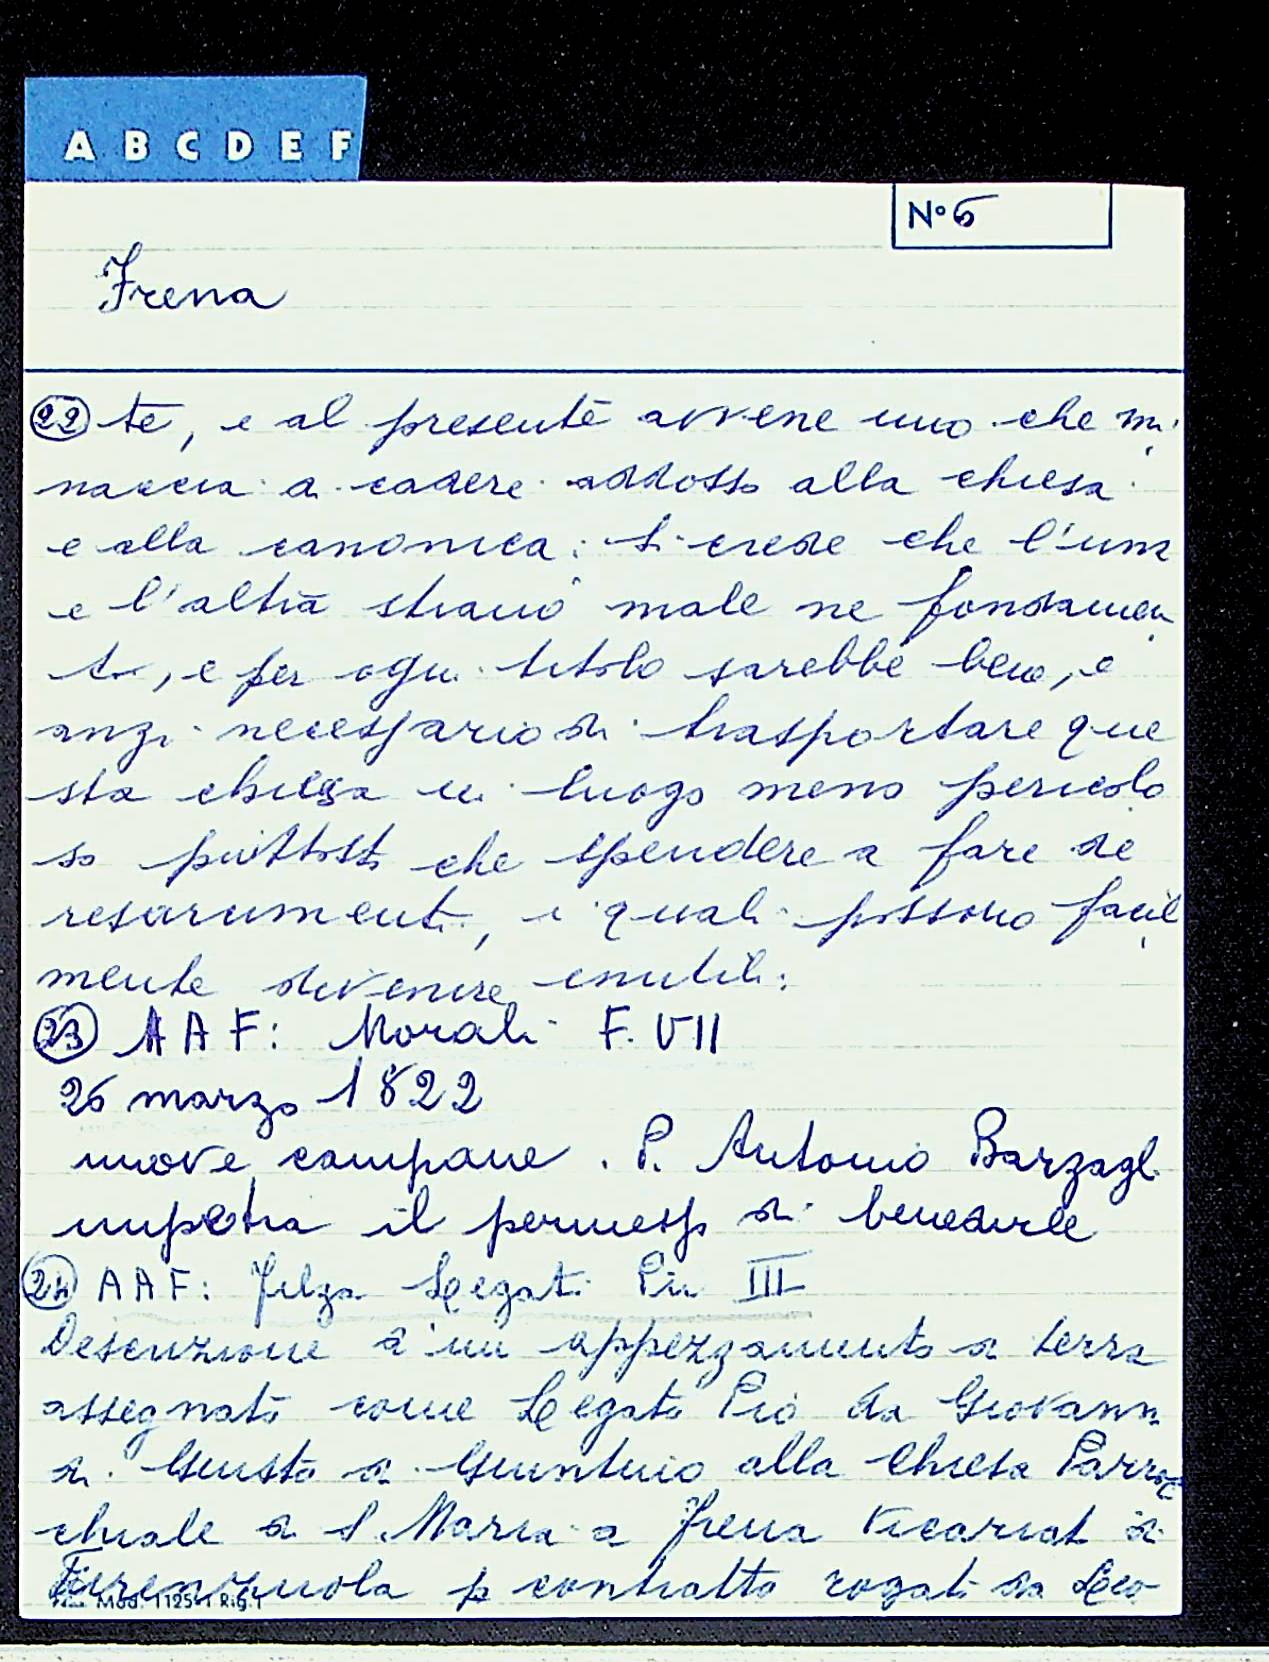 A B C D E F
N° 6
Frena
22 te, e al presente avvene uno che mi
naccia a cadere addosso alla chiesa
e alla canonica: si crede che l'una
e l'altra stiano male ne fondamen
ti, e per ogni titolo sarebbe bene, e
anzi necessario di trasportare que
sta chiesa in luogo meno pericolo
so piuttosto che spendere a fare de
resarcimenti, i quali possono facil
mente divenire inutili:
23 A A F: Morali F. VII
26 marzo 1822
nuove campane. P. Antonio Barzagli
impetra il permesso di benedirle
24 A A F: Filza Legati Pii III
Descrizione d'un appezzamento di terra
assegnato come Legato Pio da Giovanni
di Giusto di Giuntino alla Chiesa Parroc
chiale di S. Maria a Frena Vicariato di
Firenzuola p contratto rogato da Leo
Mod. 1125-1 Rig. 1